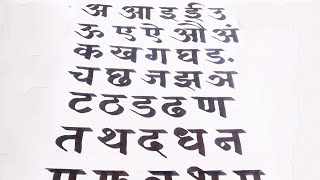 अ आ इ ई उ
ऊ ए ऐ औ अं
क ख ग घ ङ
च छ ज झ ञ
ट ठ ड ढ ण
त थ द ध न